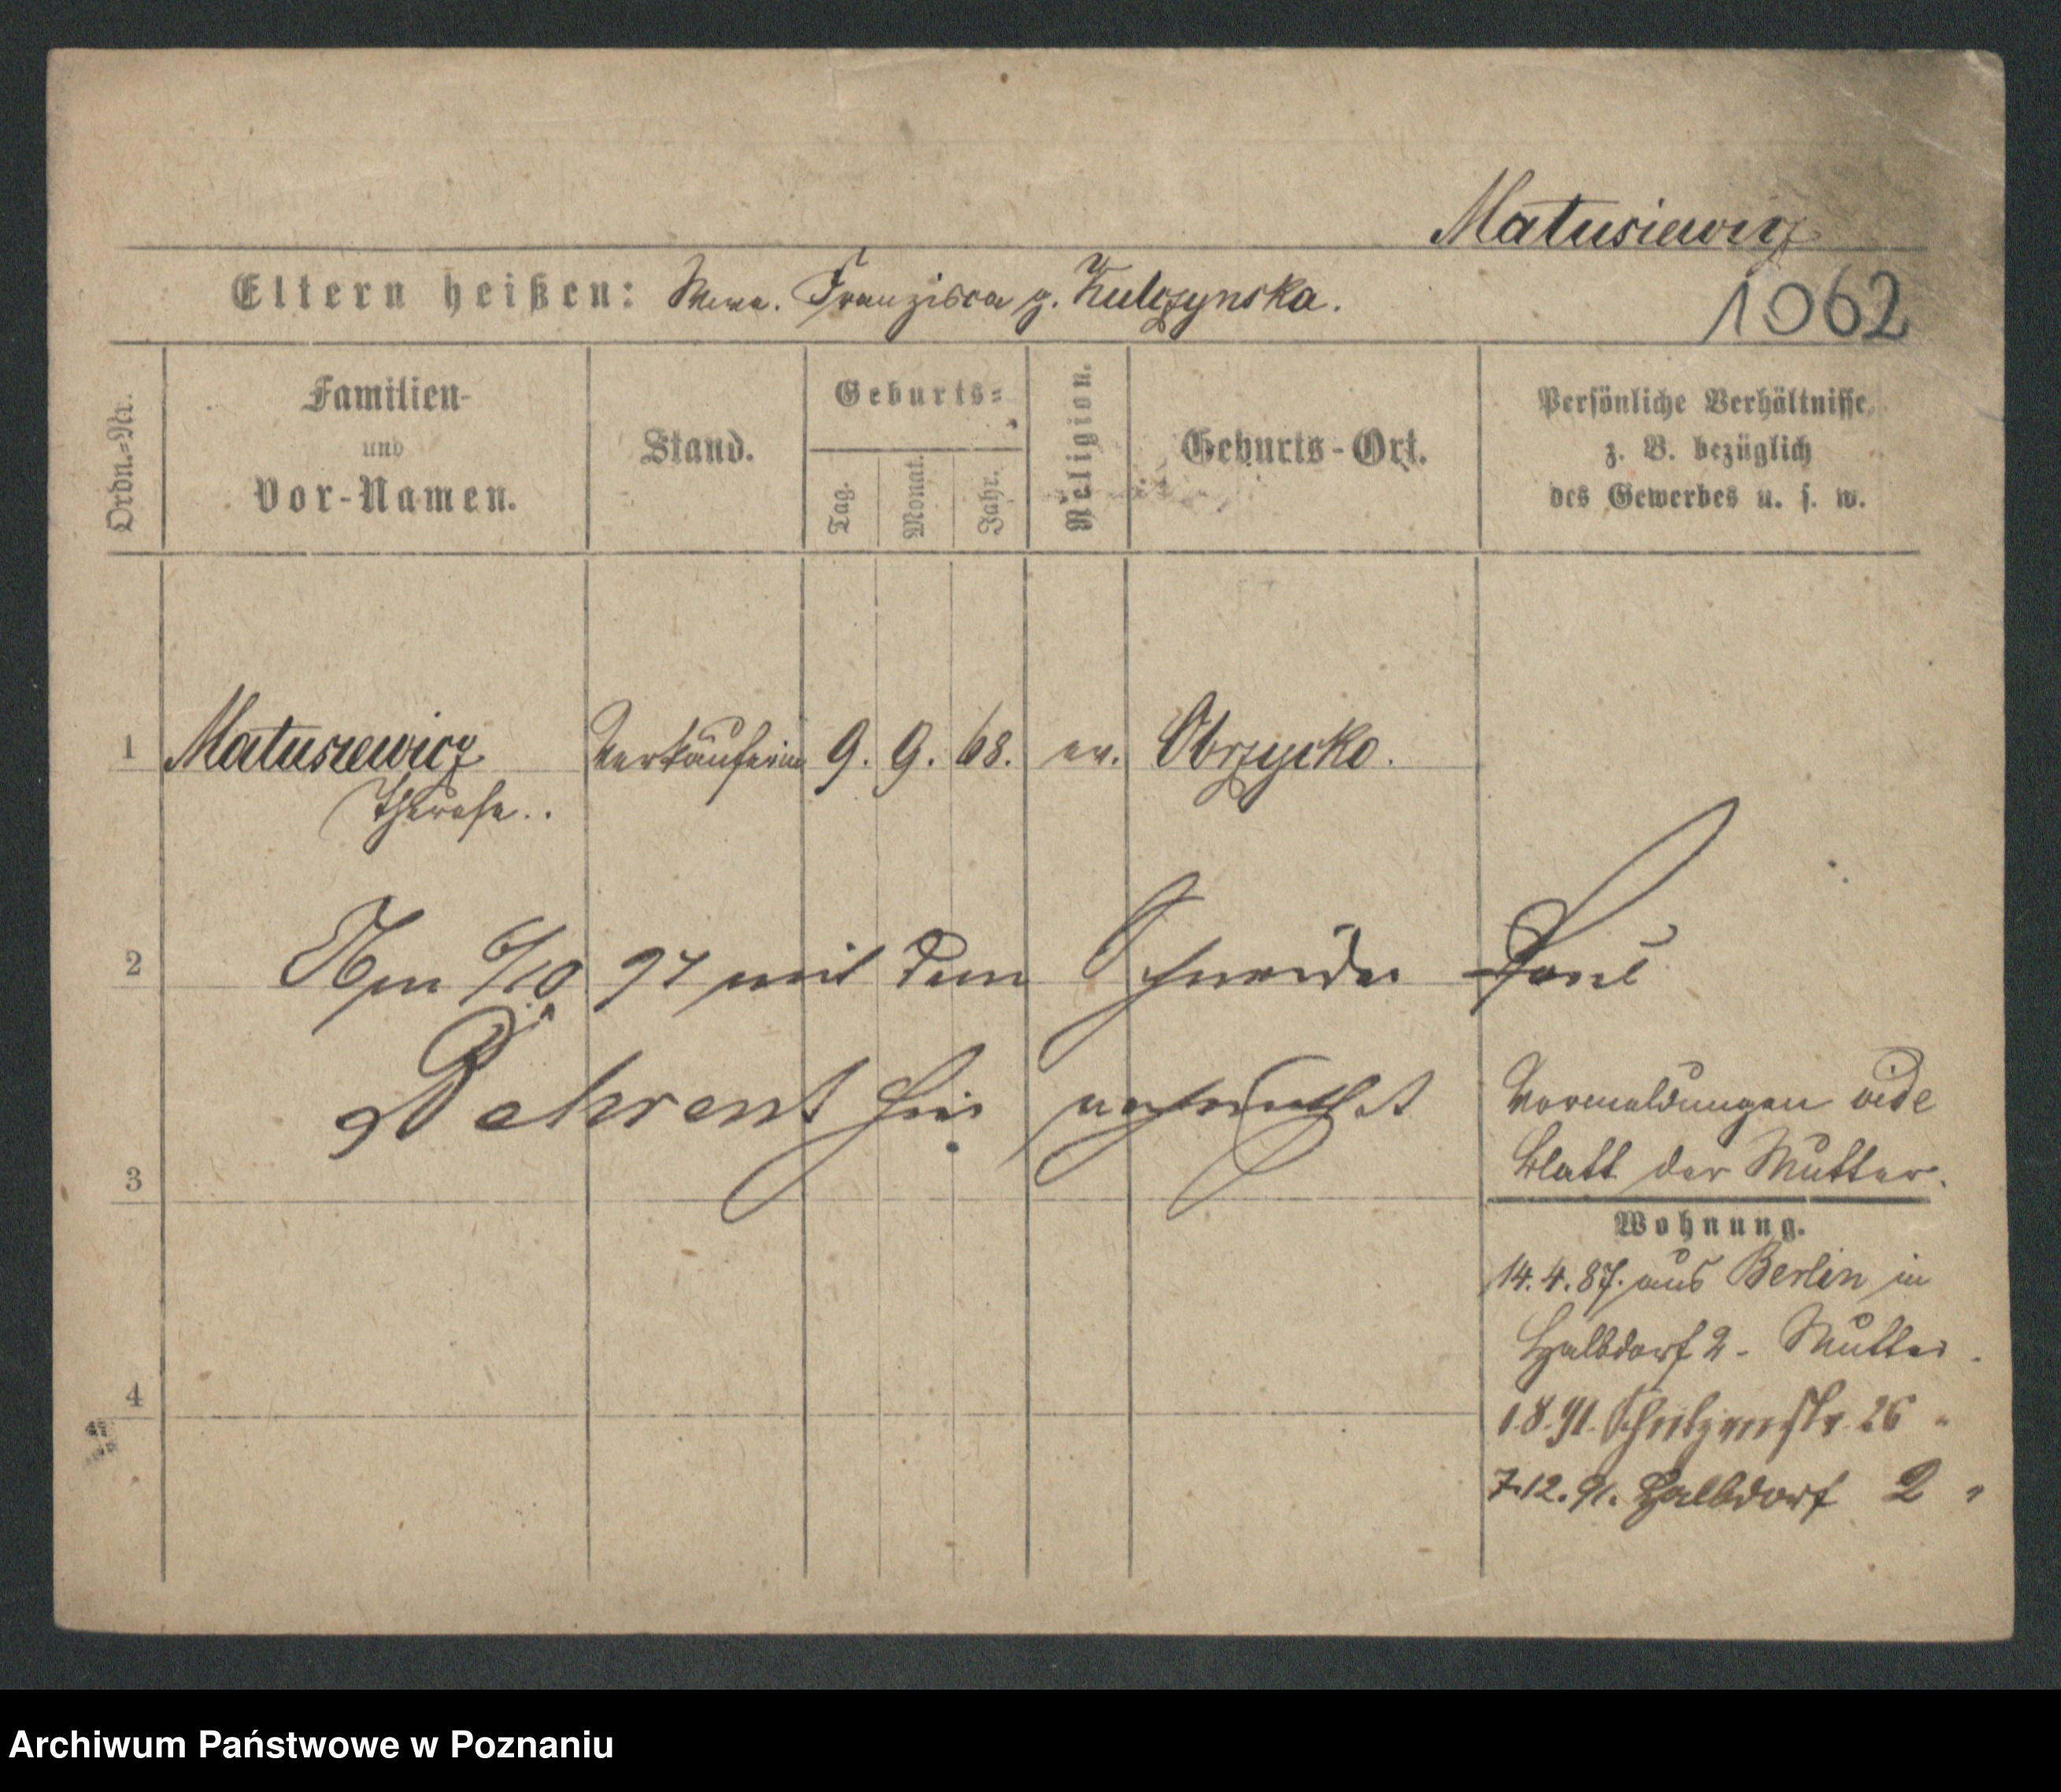 Matusiewicz
Eltern heißen: Wwe. Franzisca g. Kulczynska.
1062
Ordn.=Nr.
Familien-
und
Vor-Namen.
Stand.
Geburts=
Tag.
Monat.
Jahr.
Religion.
Geburts-Ort.
Persönliche Verhältnisse
z. B. bezüglich
des Gewerbes u. s. w.
1 Matusiewicz Verkäuferin 9. 9. 68. ev. Obrzycko.
Therese..
2 Am 6/10 97 mit dem Schneider Paul
Behrent hier verheirathet
Vormeldungen vide
Blatt der Mutter.
3
Wohnung.
14. 4. 87. aus Berlin in
Halbdorf 2 - Mutter.
4
1.8.91. Schützenstr. 26 "
7.12.91. Halbdorf 2 "
Archiwum Państwowe w Poznaniu